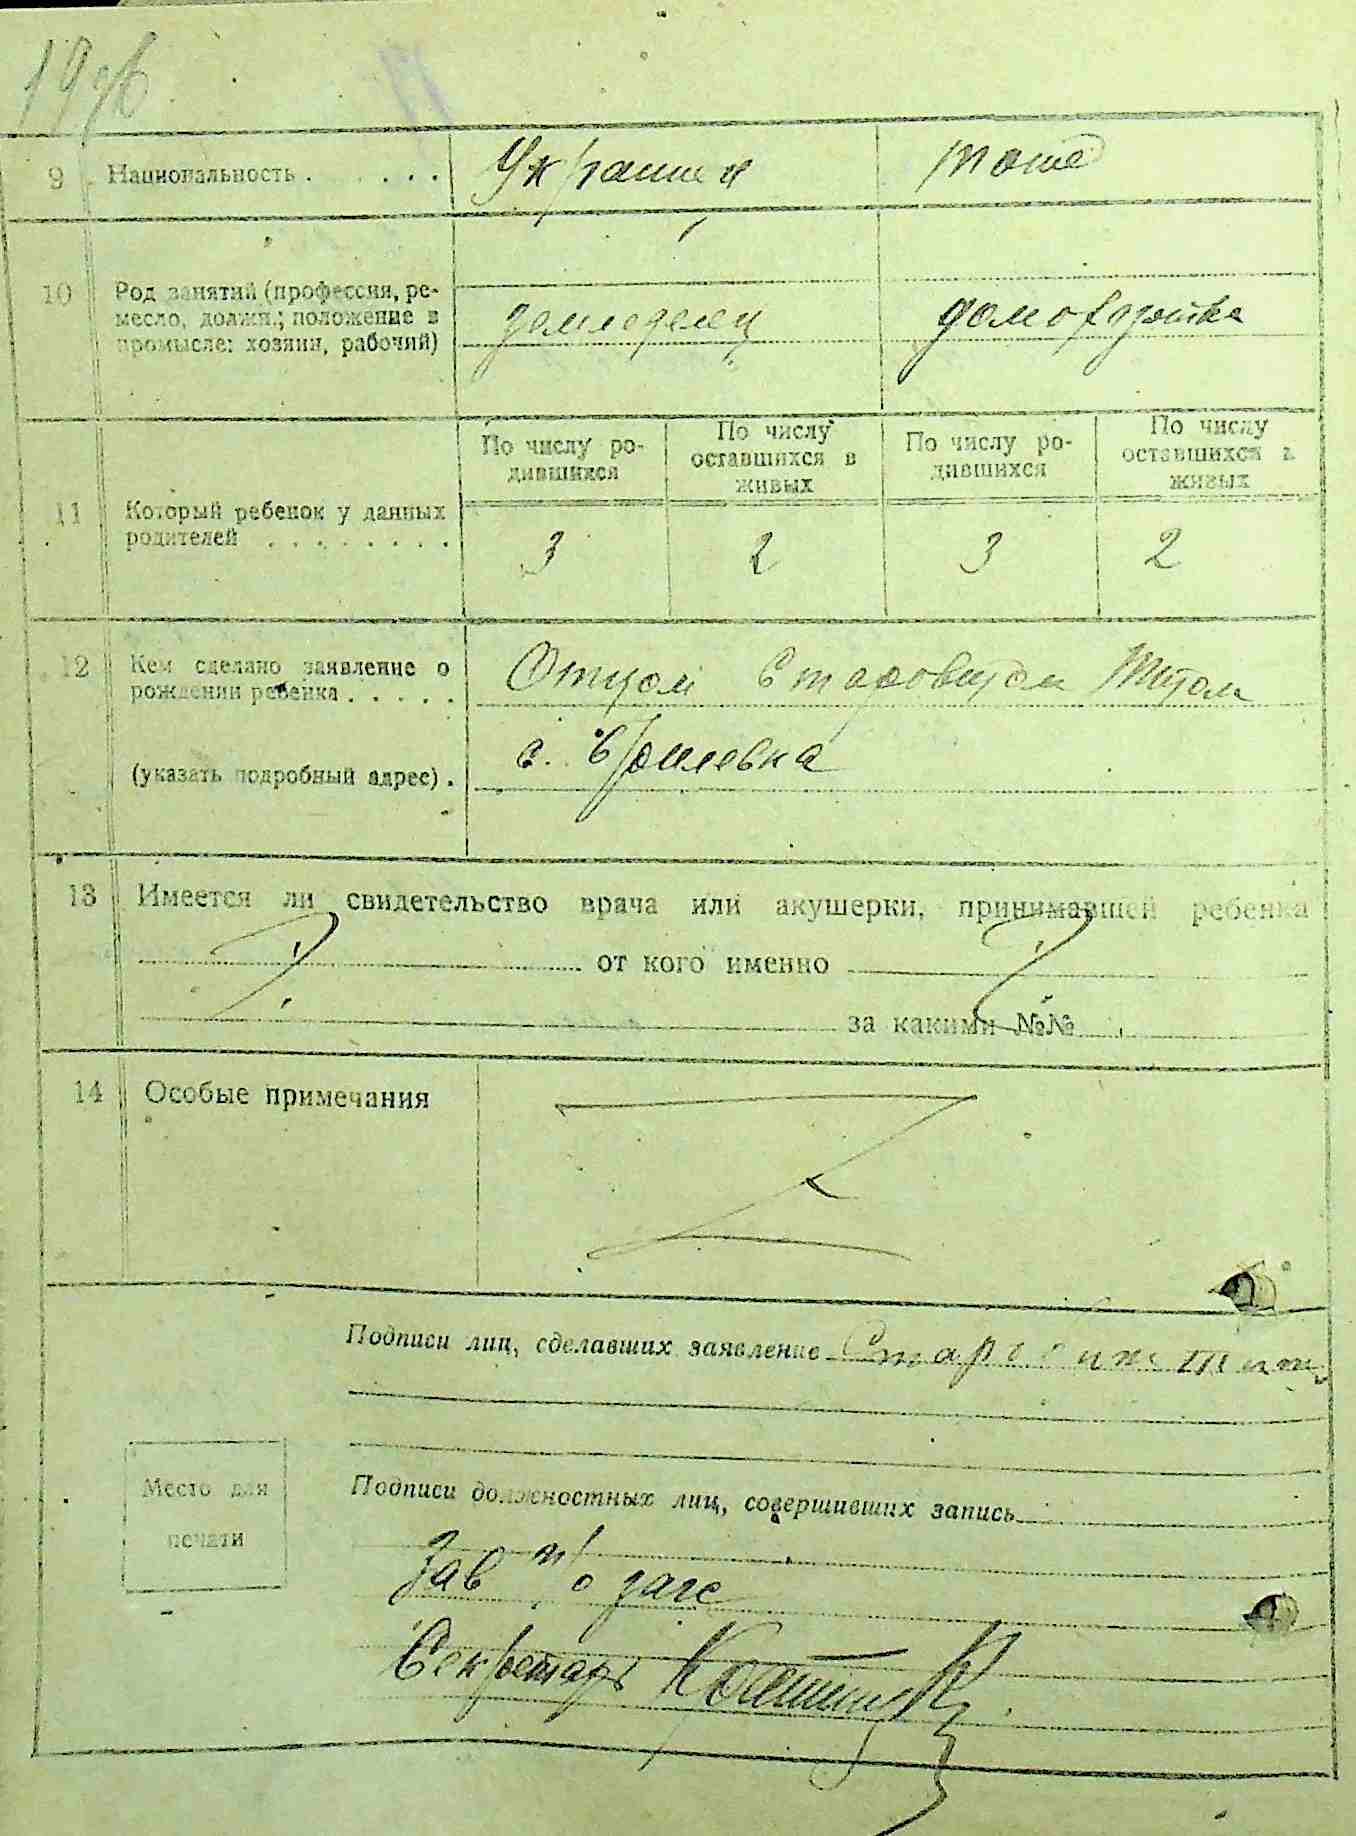 1926
9 Национальность . . . . . . Украинец тоже
10 Род занятий (профессия, ре-
месло, должн.; положение в
промысле: хозяин, рабочий)
земледелец домохозяйка
По числу ро-
дившихся
По числу
оставшихся в
живых
По числу ро-
дившихся
По числу
оставшихся в
живых
11 Который ребенок у данных
родителей . . . . . . . .
3 2 3 2
12 Кем сделано заявление о
рождении ребенка . . . . .
Отцом Титом
(указать подробный адрес) .
с.
13 Имеется ли свидетельство врача или акушерки, принимавшей ребенка
от кого именно
за какими №№
14 Особые примечания
Подписи лиц, сделавших заявление
Место для
печати
Подписи должностных лиц, совершивших запись
Зав п/о загс
Секретарь